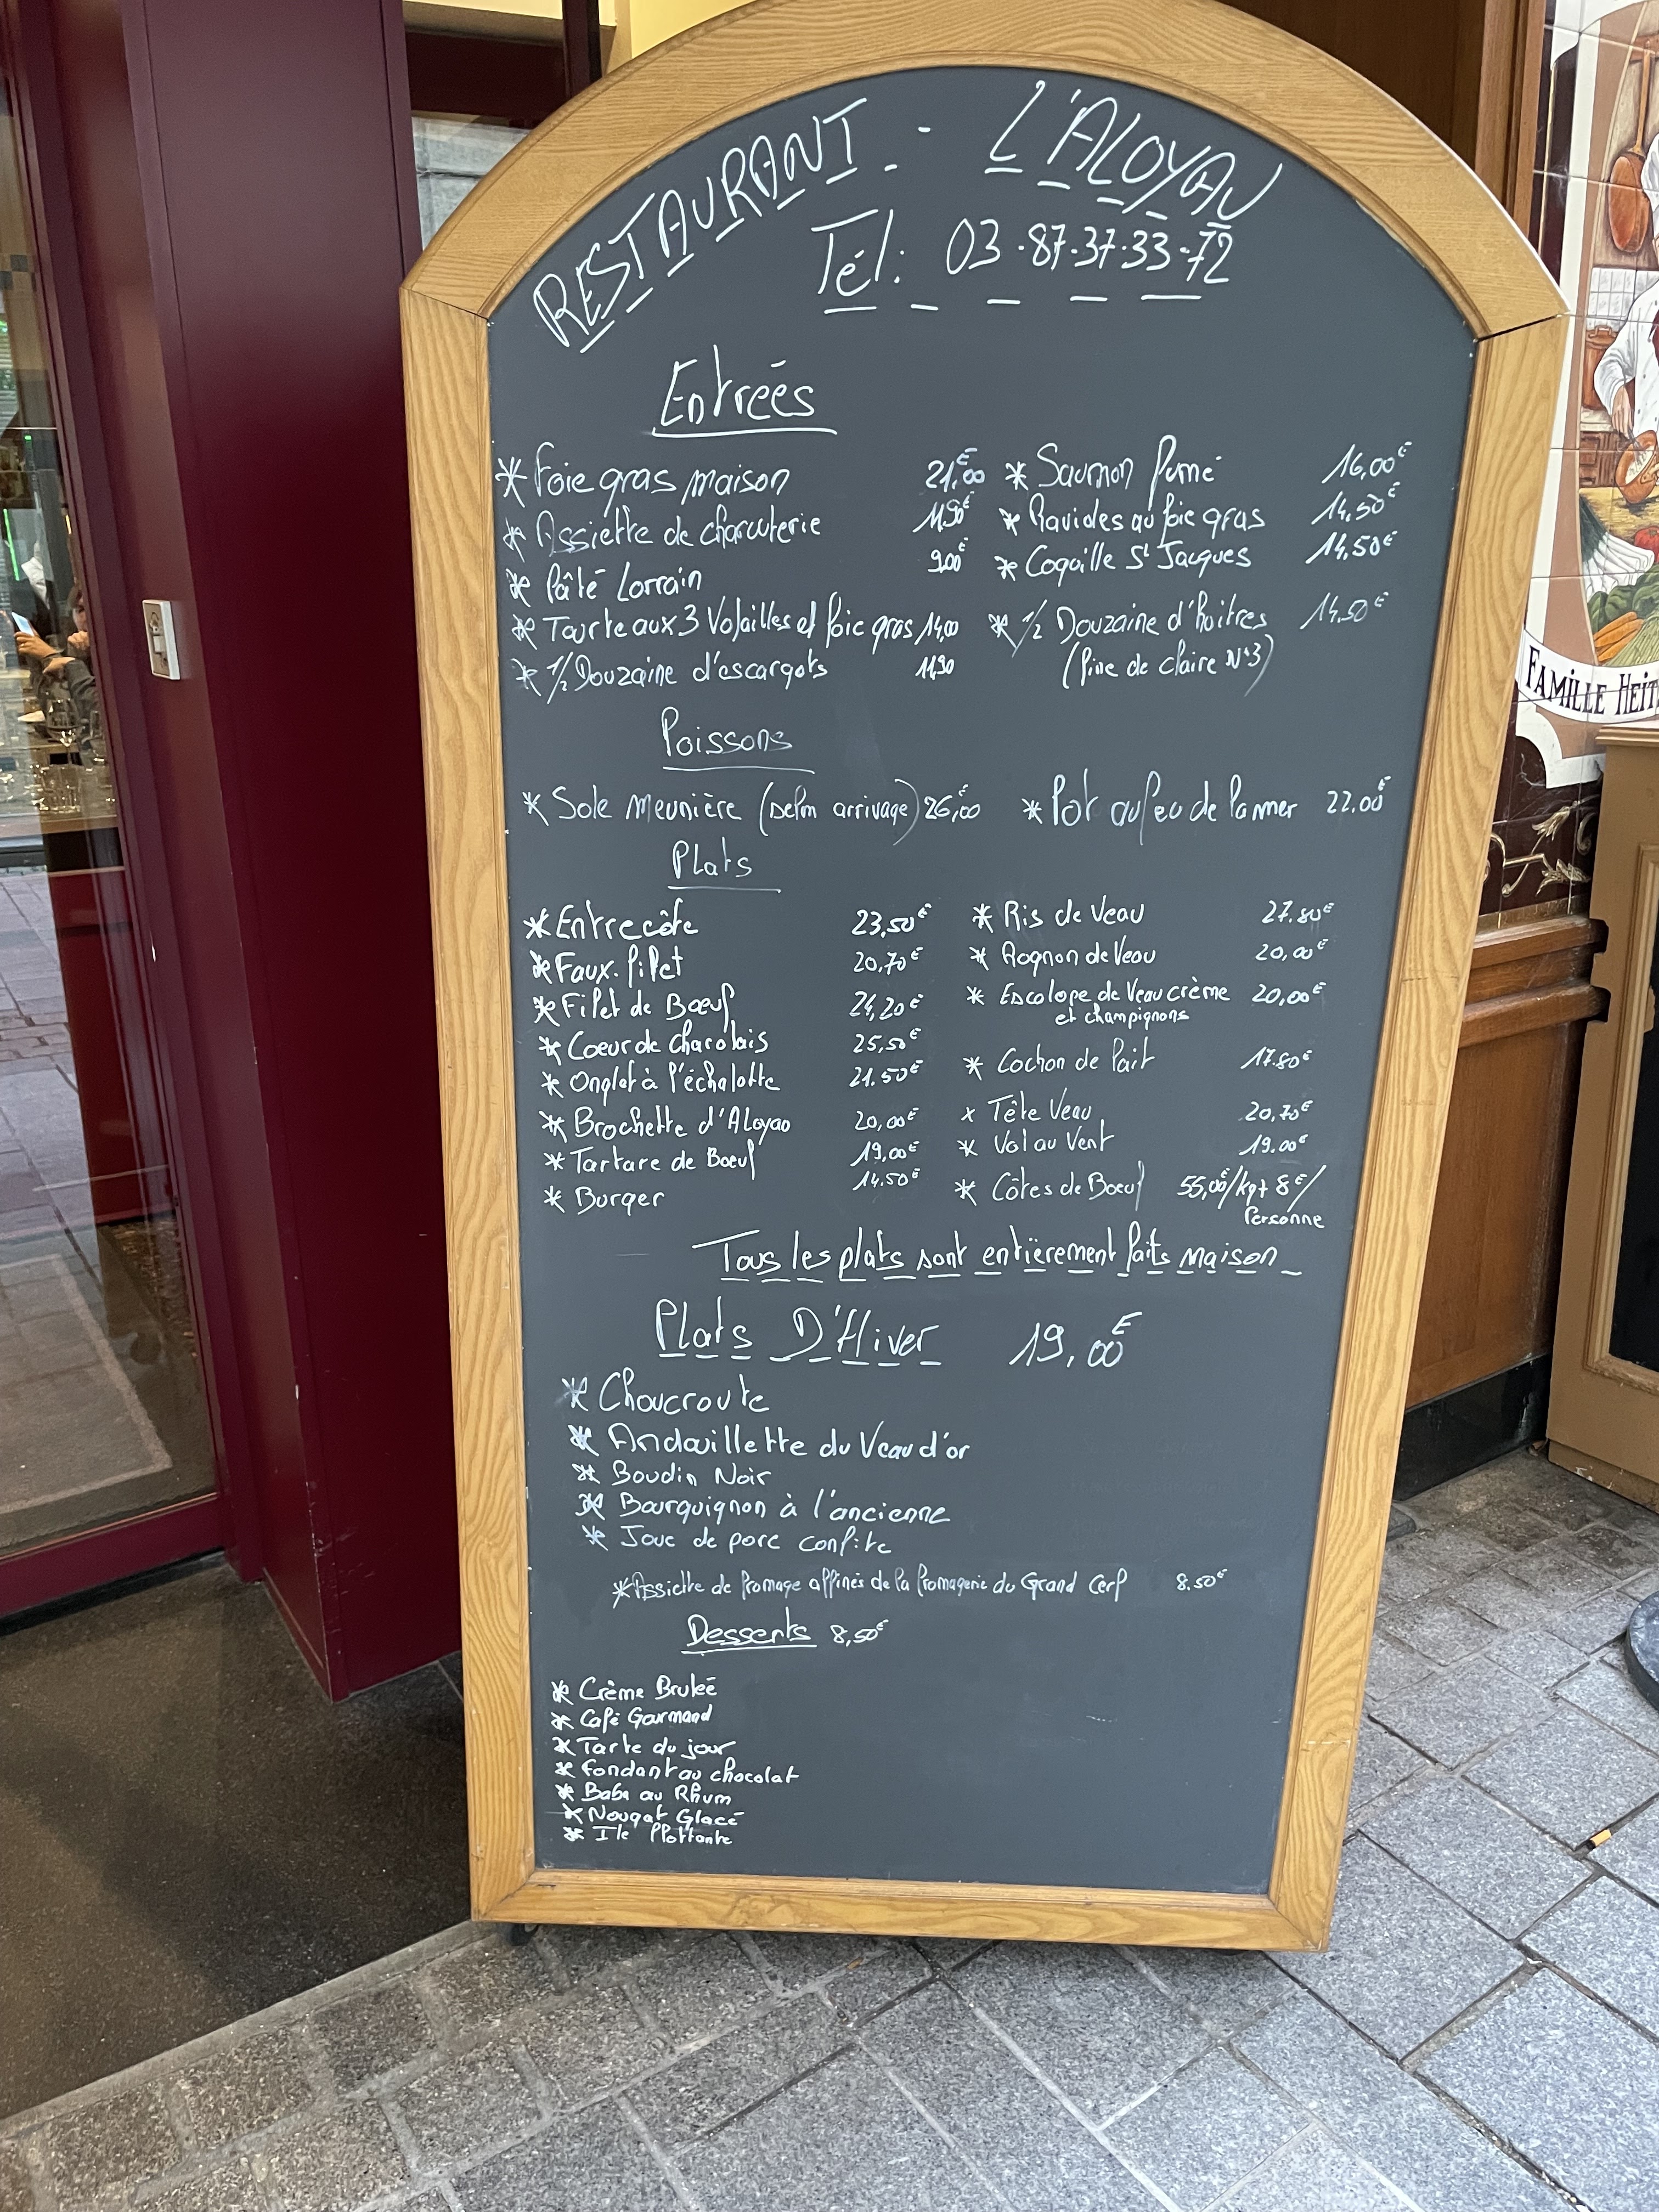 RESTAURANT - L'ALOYAU
Tél: 03.87.37.33.72
Entrées
* Foie gras maison 21,00€
* Assiette de charcuterie 11,90€
* Pâté Lorrain 9,00€
* Tourte aux 3 Volailles et foie gras 14,00
* 1/2 Douzaine d'escargots 11,90
* Saumon fumé 16,00€
* Ravioles au foie gras 14,50€
* Coquille St Jacques 14,50€
* 1/2 Douzaine d'huitres 14.50€
(fine de claire N°3)
Poissons
* Sole meunière (selon arrivage) 26,00€
* Pot au feu de la mer 22.00€
Plats
* Entrecôte 23,50€
* Faux-filet 20,70€
* Filet de Bœuf 24,20€
* Coeur de charolais 25,50€
* Onglet à l'échalotte 21.50€
* Brochette d'Aloyau 20,00€
* Tartare de Boeuf 19,00€
* Burger 14.50€
* Ris de Veau 27.80€
* Rognon de Veau 20,00€
* Escalope de Veau crème 20,00€
et champignons
* Cochon de lait 17.80€
x Tête Veau 20,70€
* Vol au Vent 19.00€
* Côtes de Boeuf 55,00/kg+ 8€/
Personne
Tous les plats sont entièrement faits maison
Plats D'Hiver 19,00€
* Choucroute
* Andouillette du Veau d'or
* Boudin Noir
* Bourguignon à l'ancienne
* Joue de porc confite
* Assiette de fromage affinés de la fromagerie du Grand Cerf 8.50€
Desserts 8,50€
* Crème Bruleé
* Café Gourmand
* Tarte du jour
* Fondant au chocolat
* Baba au Rhum
* Nougat Glacé
* Ile flottante
FAMILLE HEIT